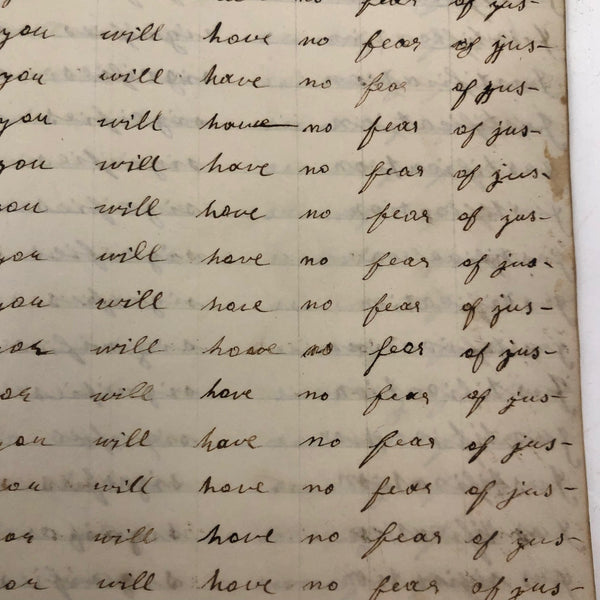 fear of jus-
you will have no fear of jus-
you will have no fear of jus-
you will have no fear of jus-
you will have no fear of jus-
you will have no fear of jus-
you will have no fear of jus-
you will have no fear of jus-
you will have no fear of jus-
you will have no fear of jus-
you will have no fear of jus-
you will have no fear of jus-
you will have no fear of jus-
you will have no fear of jus-